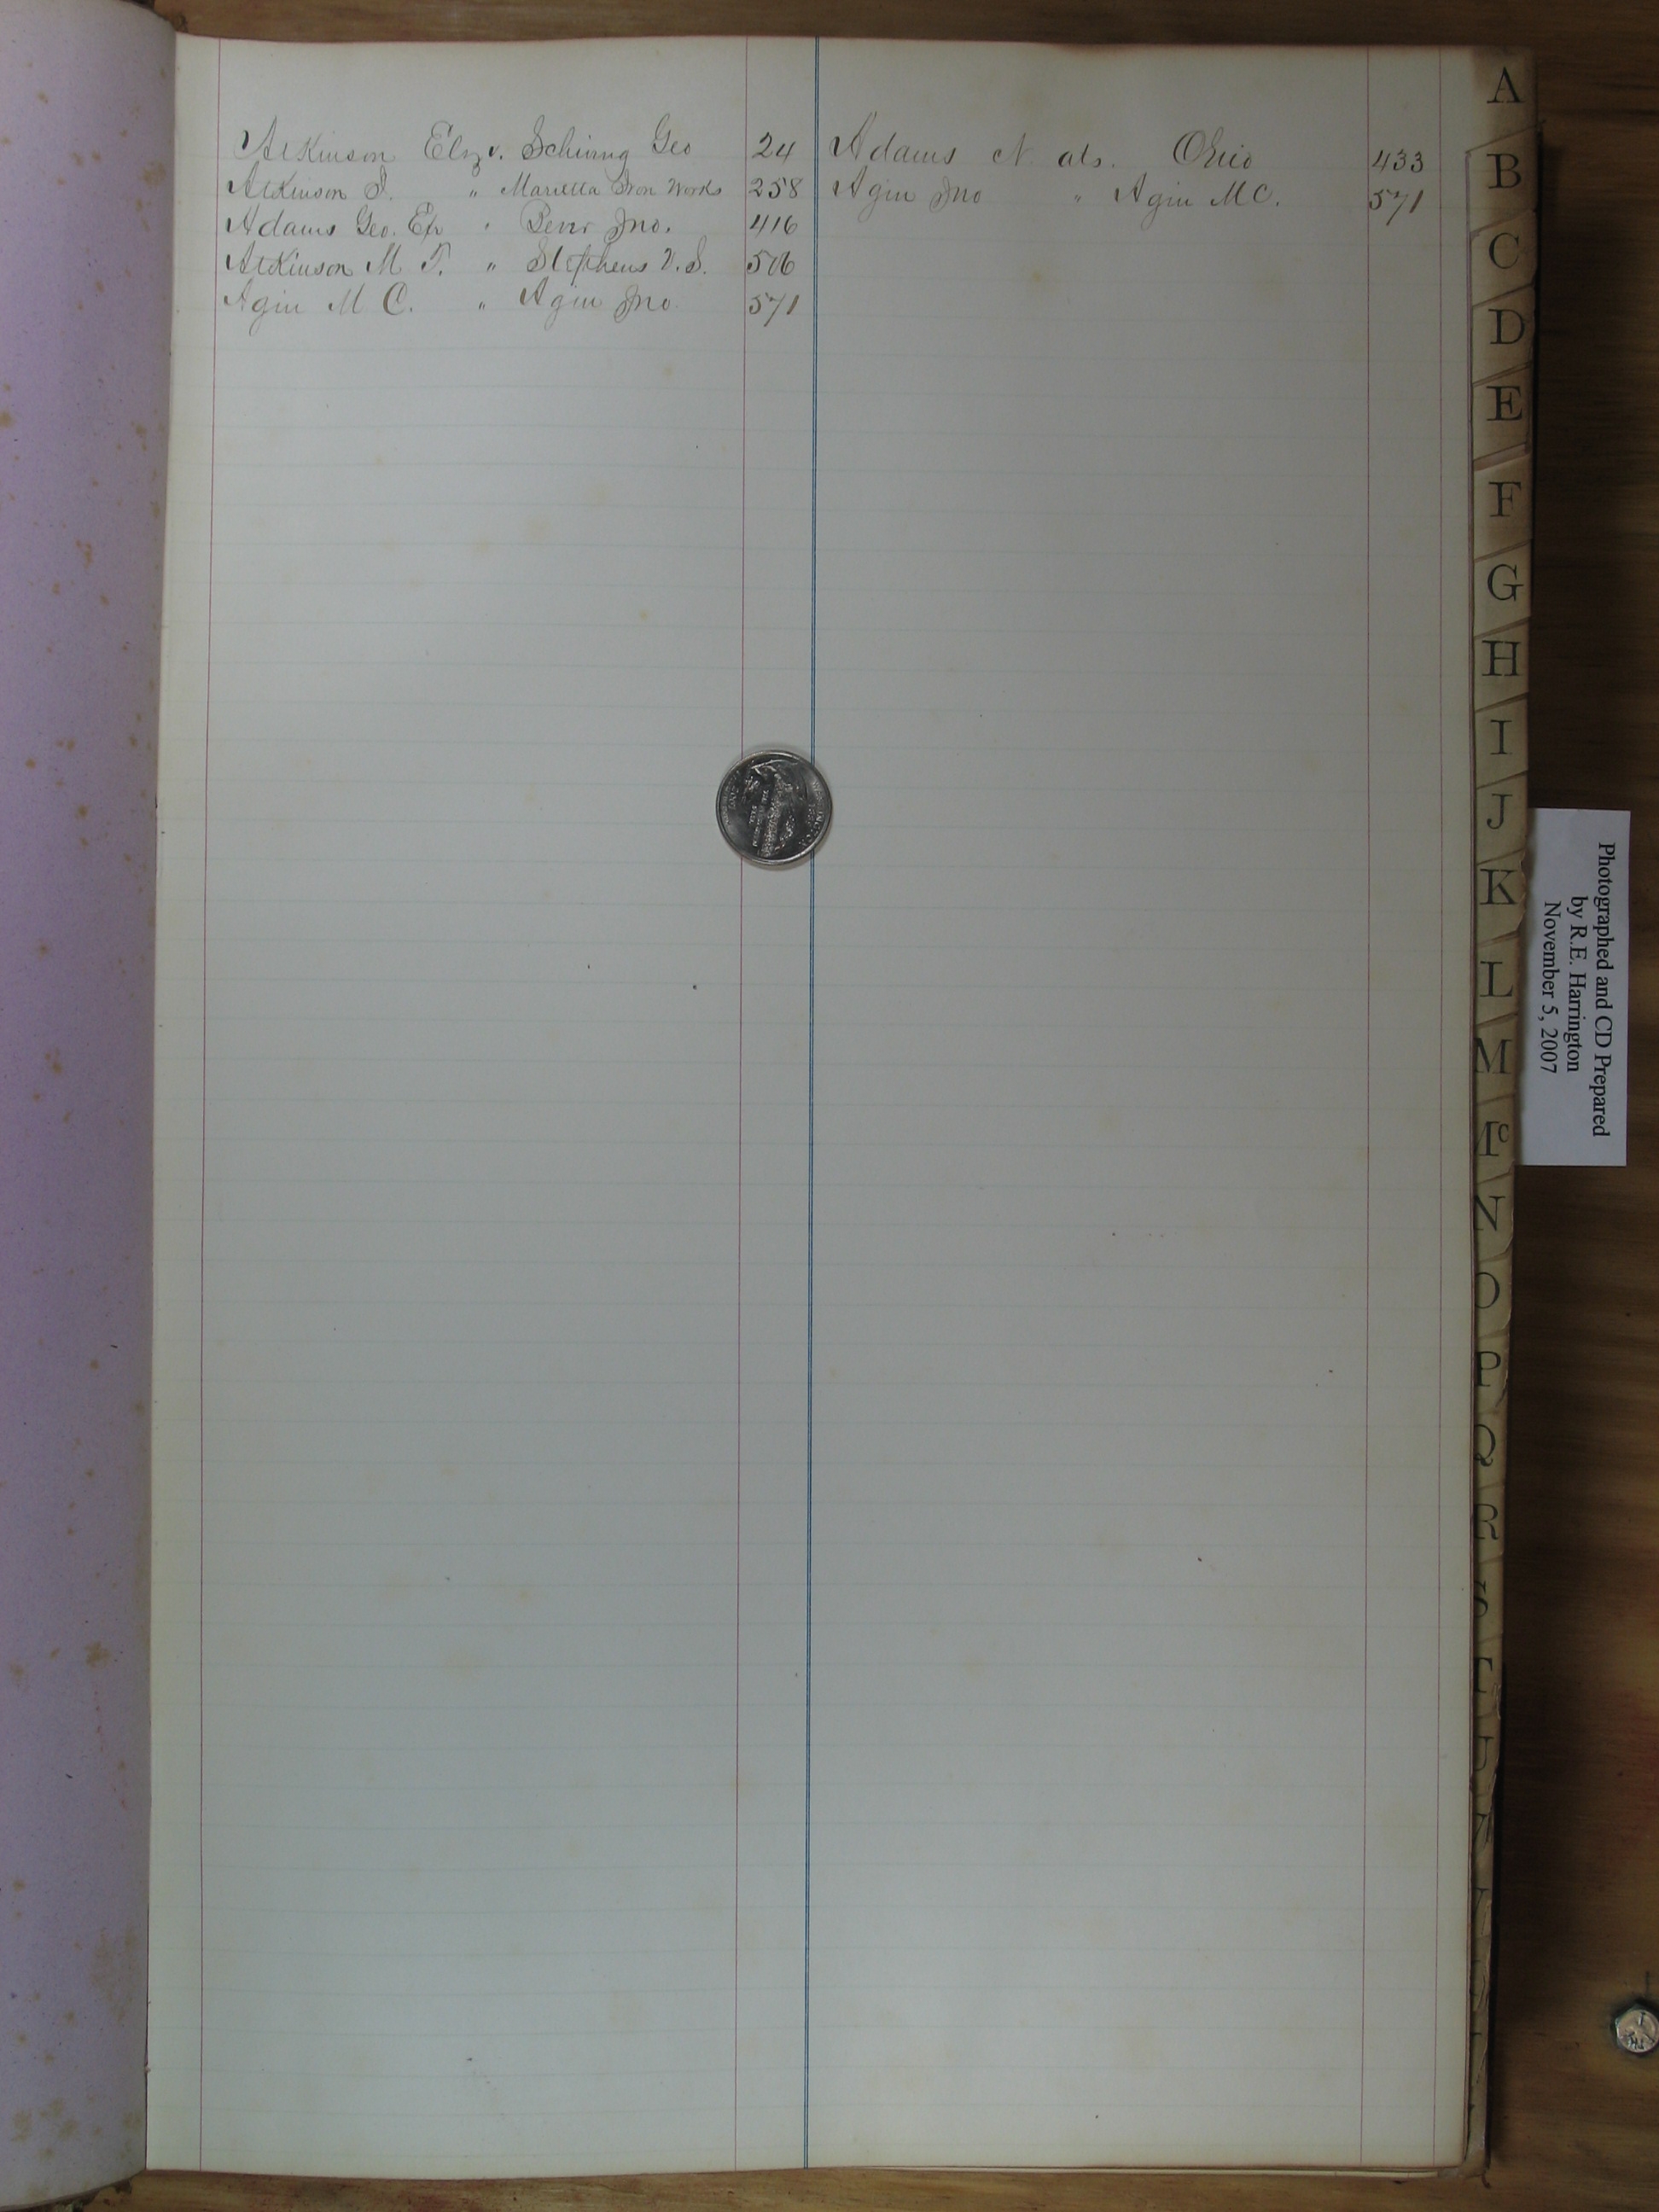 Atkinson Elz v. Schimg Geo 24
Atkinson S. " Marietta Iron Works 258
Adams Geo. Ex " Penr Jno. 416
Atkinson M T. " Stephens V. S. 506
Agin M C. " Agin Jno 571
Adams N. ats. Ohio 433
Agin Jno " Agin M C. 571
A
B
C
D
E
F
G
H
I
J
K
L
M
Mc
N
O
P
Q
R
S
Photographed and CD Prepared
by R.E. Harrington
November 5, 2007